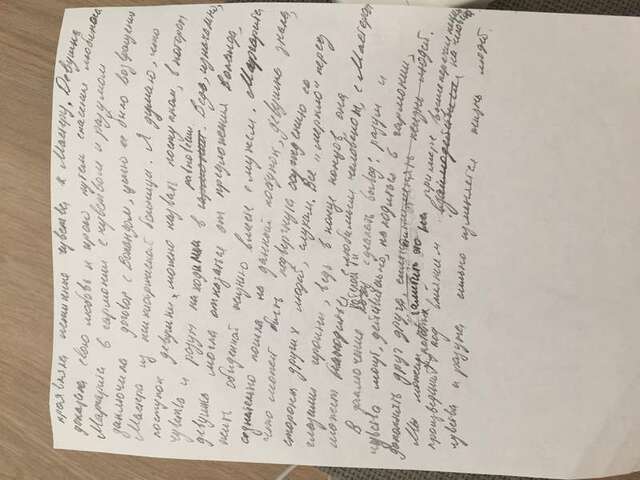 проявляла истинные чувства к Мастеру. Девушка
доказала свою любовь к герою путем спасения любимого.
Маргарита в гармонии с чувством и разумом
заключила договор с Воландом, целью ее было возвращение
Мастера из психиатрической больницы. Я думаю, что
поступок девушки, можно назвать поступком, в котором
чувства и разум находились в равновесии. Ведь, изначально,
девушка могла отказаться от предложения Воланда,
жить обыденной жизнью вместе с мужем. Маргарита
сознательно пошла на данный поступок, девушка знала,
что может быть подвергнута осуждению со
стороны других людей, слухам. Все "меркло" перед
глазами героини, ведь в конце концов, она
может находиться с любимым человеком, с Мастером
В заключение хотелось сделать вывод: разум и
чувства могут, действительно, находиться в гармонии,
дополнять друг друга, жизнь людей.
Мы можем заметить это на примере вышеперечисленных
произведений, под влиянием на человека
чувства и разума, сильно изменяется жизнь людей.